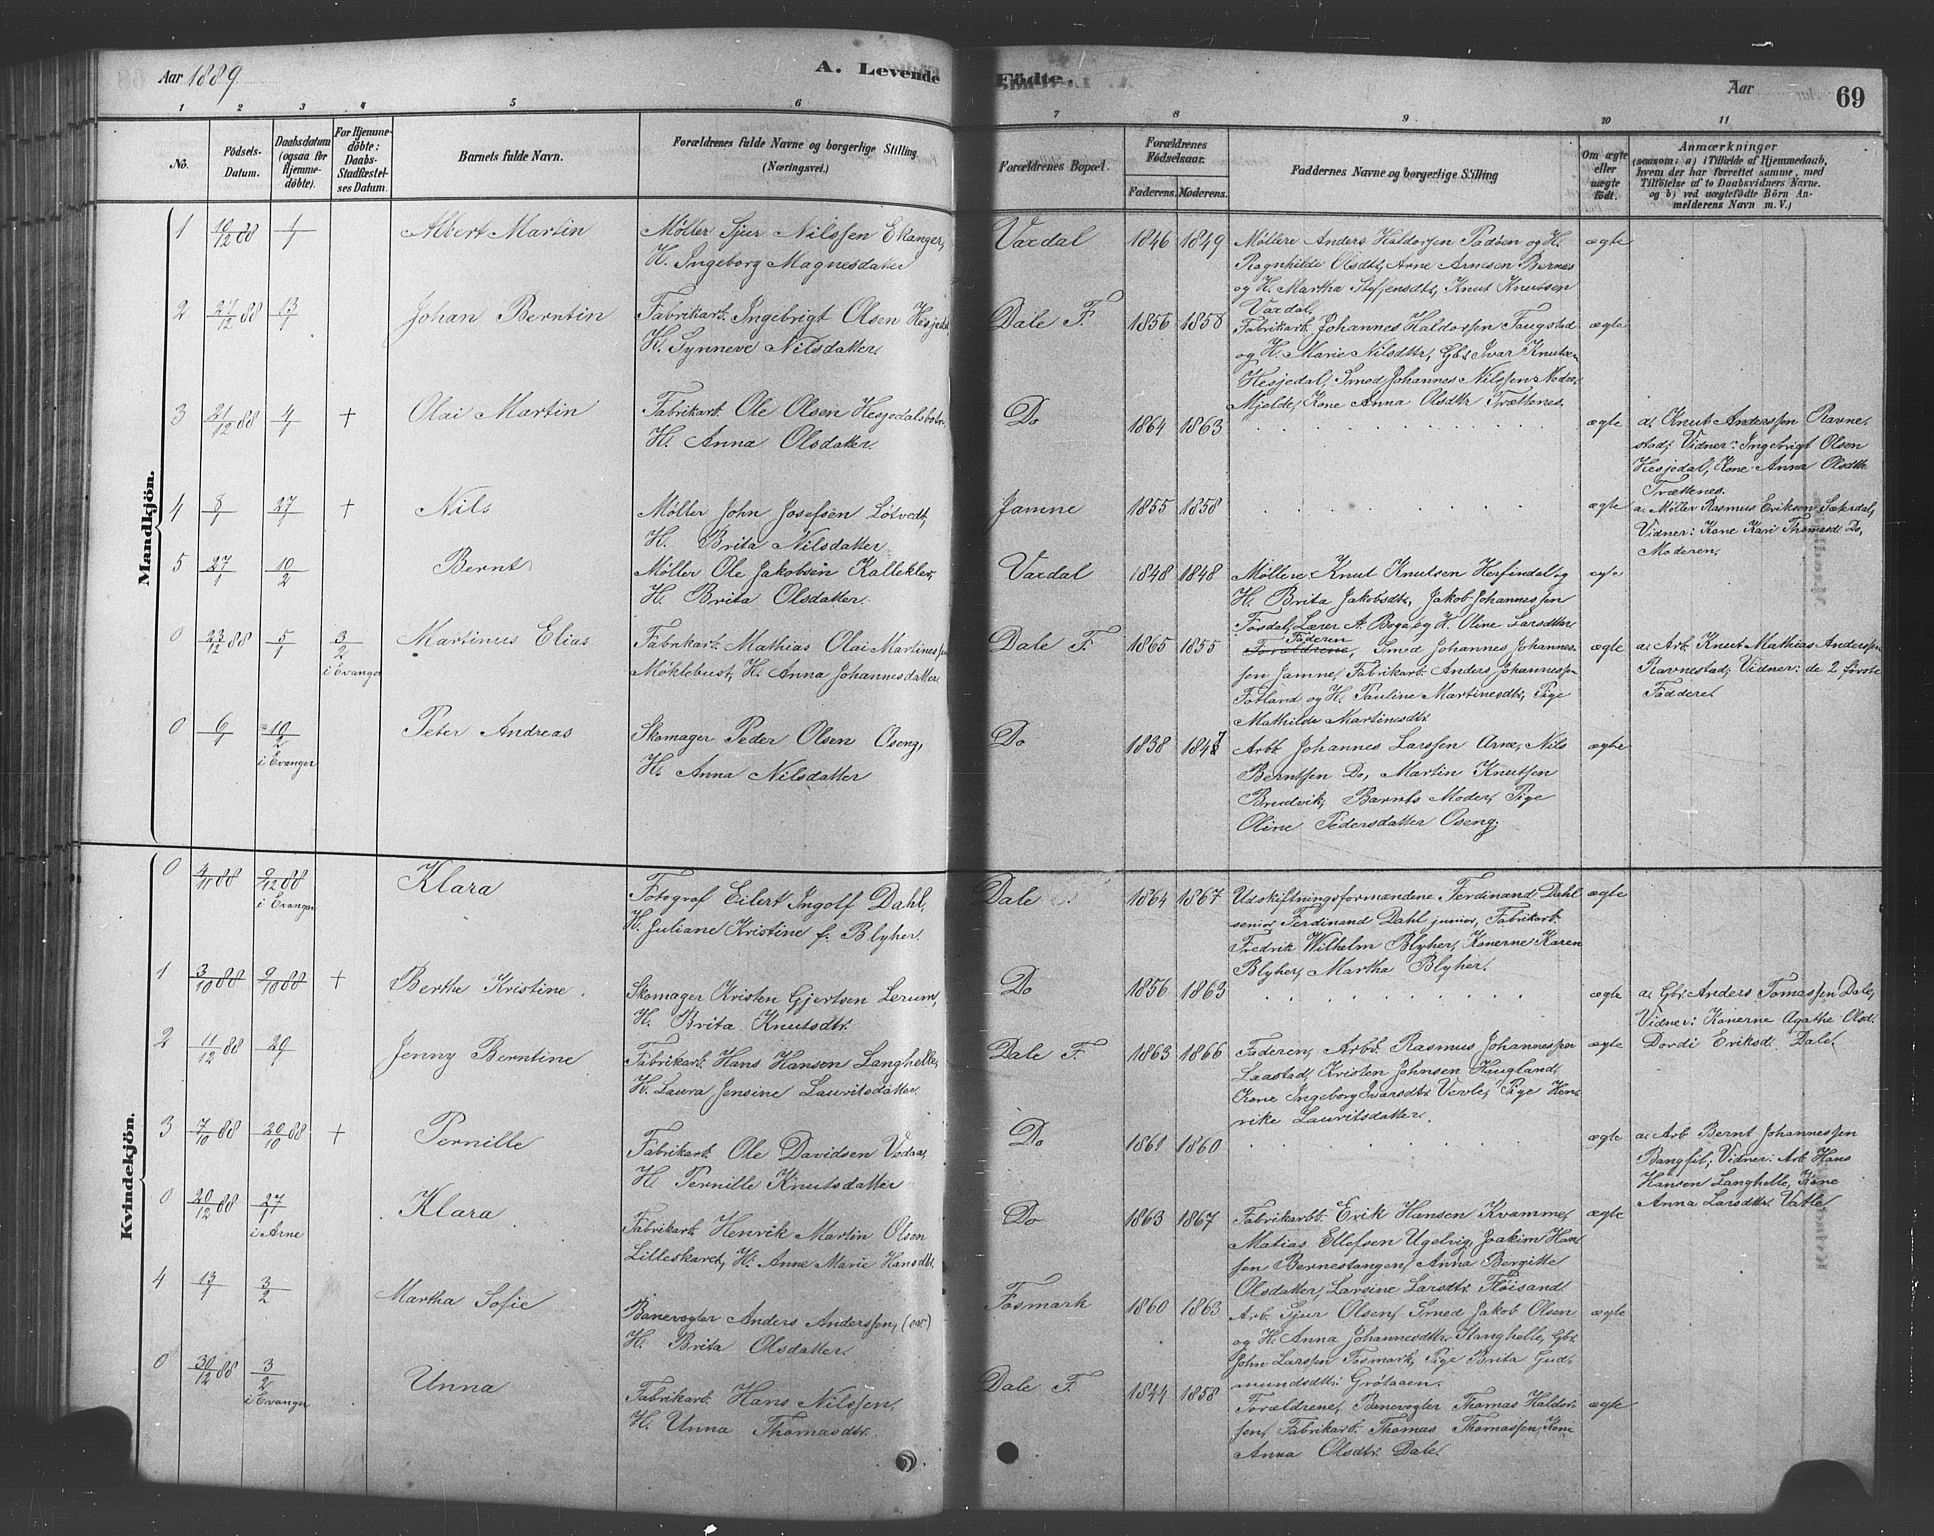 Aar 1889
A. Levende Födte.
Aar
69
1 2 3 4 5 6 7 8 9 10 11
No.
Födsels-Datum.
Daabsdatum (ogsaa for Hjemme-döbte).
For Hjemme-döbte: Daabs-Stadfæstel-ses Datum.
Barnets fulde Navn.
Forældrenes fulde Navne og borgerlige Stilling. (Næringsvei.)
Forældrenes Bopæl.
Forældrenes Födselsaar.
Faderens. Moderens.
Faddernes Navne og borgerlige Stilling
Om ægte eller uægte födt.
Anmærkninger
(saasom: a) i Tilfælde af Hjemmedaab,
hvem der har forrettet samme, med
Tilföielse af to Daabsvidners Navne.
og b) ved uægtefödte Börn An-
melderens Navn m. V.)
Mandkjön.
1 10/12 88 1/1 Albert Martin
Møller Sjur Nilssen Ekanger,
H. Ingeborg Magnesdatter
Vaxdal 1846 1849
Møllere Anders Haldorsen Padøen og H.
Ragnhilde Olsdtr, Arne Arnesen Bernes
og H. Martha Steffensdtr, Knut Knutsen
Vaxdal.
ægte
2 27/12 88 13/1 Johan Berntin
Fabrikarb. Ingebrigt Olsen Hesjedal
H. Synneve Nilsdatter.
Dale F. 1856 1858
Fabrikarb. Johannes Haldorsen Faugstad
og H. Marie Nilsdtr, Gbr. Ivar Knutsen
Hesjedal, Smed Johannes Nilssen Nedre
Mjelde, Kone Anna Olsdtr Trættenes.
ægte
3 21/12 88 4/1 + Olai Martin
Fabrikarb. Ole Olsen Hesjedalsbotn
H. Anna Olsdatter.
Do 1864 1863
ægte
a. Knut Anderssen Ravne-
stad; Vidner: Ingebrigt Olsen
Hesjedal, Kone Anna Olsdtr
Trættenes.
4 8/1 27/1 + Nils
Møller John Josefsen Løtvedt,
H. Brita Nilsdatter
Jamne 1855 1858
ægte
a. Møller Rasmus Eriksen Sæterdal,
Vidner: Kone Kari Thomasdtr Do,
Moderen.
5 27/1 10/2 Bernt
Møller Ole Jakobsen Kallekleiv,
H. Brita Olsdatter.
Vaxdal 1848 1848
Møllere Knut Knutsen Herfindal og
H. Brita Jakobsdtr, Jakob Johannessen
Forsdal, Lærer A. Boge og H. Oline Larsdatter
0 23/12 88 5/1 3/2 i Evanger
Martinus Elias
Fabrikarb. Mathias Olai Martinessen
Möklebust, H. Anna Johannesdatter
Dale F 1865 1855
Faderen
Forældrene, Smed Johannes Johannes-
sen Jamne, Fabrikarb. Anders Johannessen
Fotland og H. Pauline Martinesdtr, Pige
Mathilde Martinesdtr
ægte
a. Arb. Knut Mathias Anderssen
Ravnestad; Vidner: de 2 første
Faddere.
0 6/1 10/2 i Evanger
Peter Andreas
Skomager Peder Olsen Oseng,
H. Anna Nilsdatter
Do 1838 1847
Arbb. Johannes Larssen Arne, Nils
Berntsen Do, Martin Knutsen
Brudvik, Barnets Moder, Pige
Oline Pedersdatter Oseng.
ægte
Kvindekjön.
0 4/11 88 9/12 88 i Evanger
Klara
Fotograf Eilert Ingolf Dahl,
H. Juliane Kristine f. Blyher.
Dale 1864 1867
Udskiftningsformændene Ferdinand Dahl
senior, Ferdinand Dahl junior, Fabrikarb.
Fredrik Wilhelm Blyher, Konerne Karen
Blyher, Martha Blyher.
ægte
1 3/10 88 9/10 88 + Berthe Kristine.
Skomager Kristen Gjertsen Lerum,
H. Brita Knutsdtr.
Do 1856 1863
ægte
a. Gbr. Anders Tomassen Dale,
Vidner: Konerne Agathe Olsd.
Dordi Eriksd. Dale.
2 11/12 88 20/1 Jenny Berntine
Fabrikarb. Hans Hansen Langhelle,
H. Laura Jensine Lauritsdatter.
Dale F. 1863 1866
Faderen, Arbb. Rasmus Johannessen
Laastad, Kristen Johnsen Haugland,
Kone Ingeborg Ivarsdtr Vevle, Pige Hen-
rike Lauritsdatter.
ægte
3 7/10 88 20/10 88 + Pernille
Fabrikarb. Ole Davidsen Vadaas
H. Pernille Knutsdatter
Do 1861 1860
ægte
a. Arb Bernt Johannessen
Bangfil; Vidner: Arb. Hans
Hansen Langhelle, Kone
Anna Larsdtr. Vatle
0 20/12 88 27/1 i Arne
Klara
Fabrikarb. Henrik Martin Olsen
Lilleskaret, H. Anne Marie Hansdtr.
Do 1863 1867
Fabrikarbb. Erik Hansen Kvamme,
Matias Ellefsen Ugelvig, Joakim Han-
sen Bernestangen, Anna Bergitte
Olsdatter, Larsine Larsdtr. Fløisand.
ægte
4 13/1 3/2 Martha Sofie
Banevogter Anders Anderssen,
H. Brita Olsdatter.
Fosmark 1860 1863
Arb. Sjur Olsen, Smed Jakob Olsen
og H. Anna Johannesdtr. Stanghelle, Gbr.
John Larssen Fosmark, Pige Brita Gud-
mundsdtr. Grötaaen.
ægte
0 30/12 88 3/2 i Evanger
Unna
Fabrikarb. Hans Nilssen,
H. Unna Thomasdtr.
Dale F. 1844 1858
Forældrene, Banevogter Thomas Haldor-
sen, Fabrikarb. Thomas Thomassen, Kone
Anna Olsdtr. Dale.
ægte